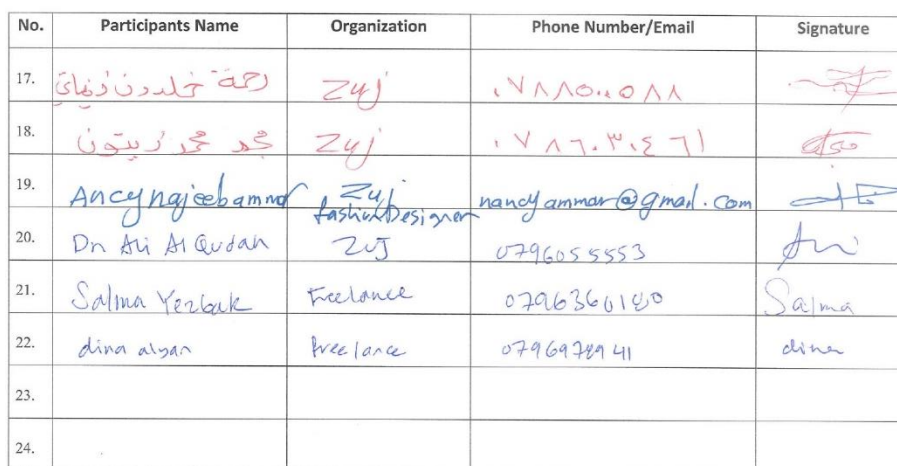 No. Participants Name Organization Phone Number/Email Signature
17. رحمة خلدون Zuj ٠٧٨٨٥٠٠٥٨٨
18. مجد محمد زيتون Zuj ٠٧٨٦٠٣٠٤٦١
19. Ancy najeebammar Zuj fashionDesigner nancyammar@gmail.com
20. Dr Ali Al Qudah ZUJ 0796055553 Ali
21. Salma Yezbak Freelance 0796360180 Salma
22. dina alyan freelance 0796978941 dina
23.
24.